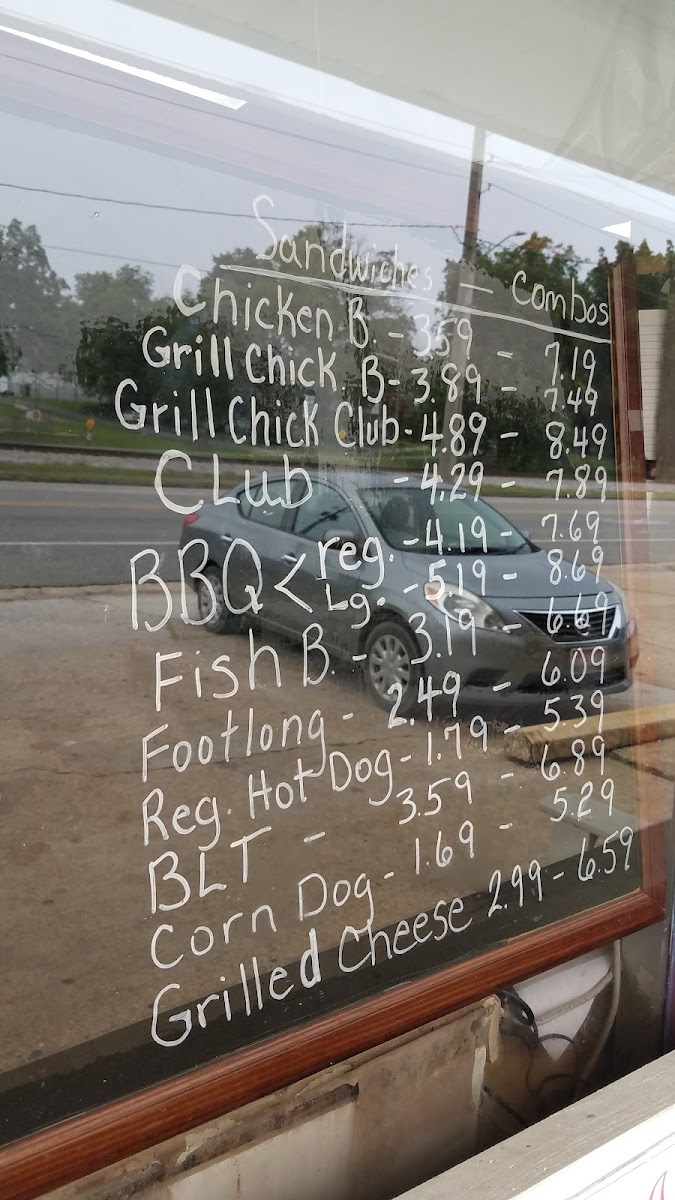 Sandwiches — Combos
Chicken B. - 3.59 - 7.19
Grill Chick. B - 3.89 - 7.49
Grill Chick Club - 4.89 - 8.49
CLub - 4.29 - 7.89
BBQ < reg. - 4.19 - 7.69
Lg. - 5.19 - 8.69
Fish B. - 3.19 - 6.69
Footlong - 2.49 - 6.09
Reg. Hot Dog - 1.79 - 5.39
BLT - 3.59 - 6.89
Corn Dog - 1.69 - 5.29
Grilled Cheese 2.99 - 6.59